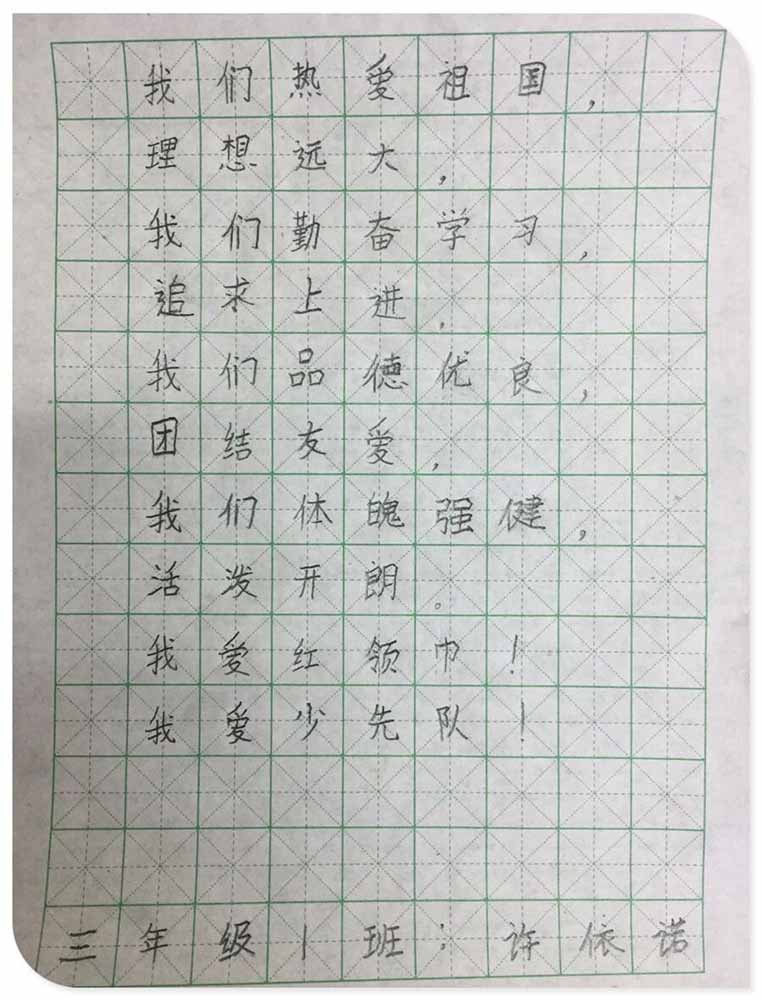 我们热爱祖国，
理想远大，
我们勤奋学习，
追求上进，
我们品德优良，
团结友爱，
我们体魄强健，
活泼开朗。
我爱红领巾！
我爱少先队！
三年级1班：许依诺